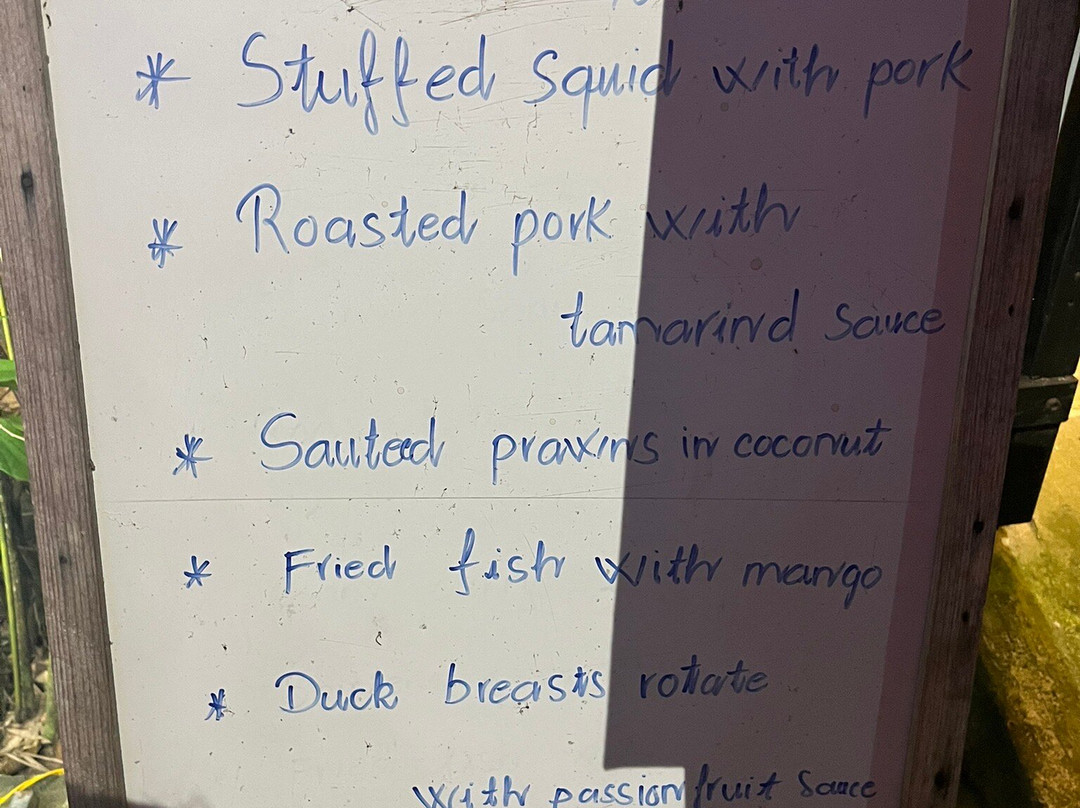 * Stuffed squid with pork
* Roasted pork with
tamarind sauce
* Sauteed prawns in coconut
* Fried fish with mango
* Duck breasts rotate
with passion fruit sauce